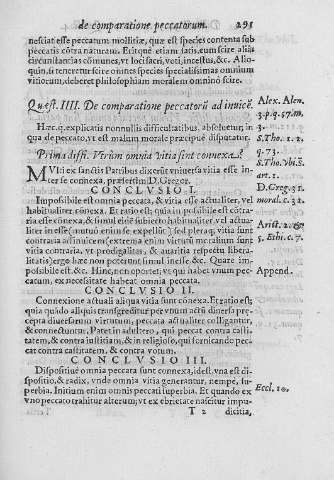 de comparatione peccatorum. 291
nesciat esse peccatum mollitiæ, quæ est species contenta sub
peccatis cõtra naturam. Eritque etiam satis, cum scire alias
circunstantias cõmunes, vt loci sacri, voti, incestus, &c. Alio
quin, si teneretur scire omnes species specialissimas omnium
vitiorum, deberet philosophiam moralem omnino scire.
Quæst. IIII. De comparatione peccatorũ ad inuicẽ.
Alex. Alen.
3.p.q.57.m.
3.
Hæc q. explicatis nonnullis difficultatibus, absoluetur, in
qua de peccato, vt est malum morale præcipuè disputatur.
S. Tho. 1. 2.
q. 73.
Prima diffi. Vtrùm omnia vitia sint connexa?
S. Tho. Vbi S.
art. 1.
MVlti ex sanctis Patribus dixerũt vniuersa vitia esse in-
ter se connexa, præsertim D. Gregor.
D. Greg. 31.
CONCLVSIO I.
moral. c. 32.
Impossibile est omnia peccata, & vitia esse actualiter, vel
habitualiter cõnexa. Et ratio est; quia in possibile est cõtra-
ria esse vitia cõnexa, & simul esse subiecto habitualiter, vel
actualiter (se mutuò enim se expellũt) sed pleraque vitia sunt
Arist. 2. &
contraria ad inuicem (extrema enim virtutũ moralium sunt
5. Ethi. c. 7.
vitia contraria, vt prodigalitas, & auaritia respectu libera-
litatis) ergo hæc non poterunt simul inesse &c. Quare im-
possibile est &c. Hinc, non oportet, vt qui habet vnum pec-
Append.
catum, ex necessitate habeat omnia peccata.
CONCLVSIO II.
Connexione actuali aliqua vitia sunt cõnexa. Et ratio est;
quia quãdo aliquis transgreditur per vnum actũ diuersa præ-
cepta diuersarum virtutum, peccata actualiter colligantur,
& connectuntur. Patet in adultero, qui peccat contra castita-
tem, & contra iustitiam, & in religioso, qui fornicando pec-
cat contra castitatem, & contra votum.
CONCLVSIO III.
Dispositiuè omnia peccata sunt connexa, idest vna est di-
spositio, & radix, vnde omnia vitia generantur, nempè, su-
perbia. Initium enim omnis peccati superbia. Et quando ex
Eccl. 10.
vno peccato trahitur alterum; vt ex ebrietate nascitur impu-
T 2 dicitia,